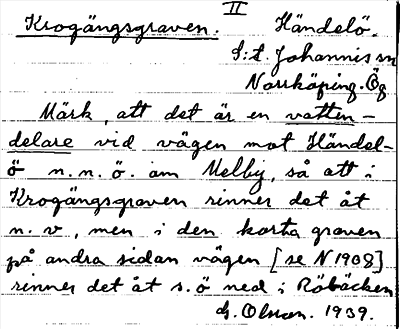 II
Krogängsgraven. Händelö.
S:t. Johannis sn
Norrköping. Ög
Märk, att det är en vatten-
delare vid vägen mot Händel-
ö n.n.ö. om Melby, så att i
Krogängsgraven rinner det åt
n.v, men i den korta graven
på andra sidan vägen [se N1908]
rinner det åt s.ö ned i Röbäcken
G. Olson. 1939.